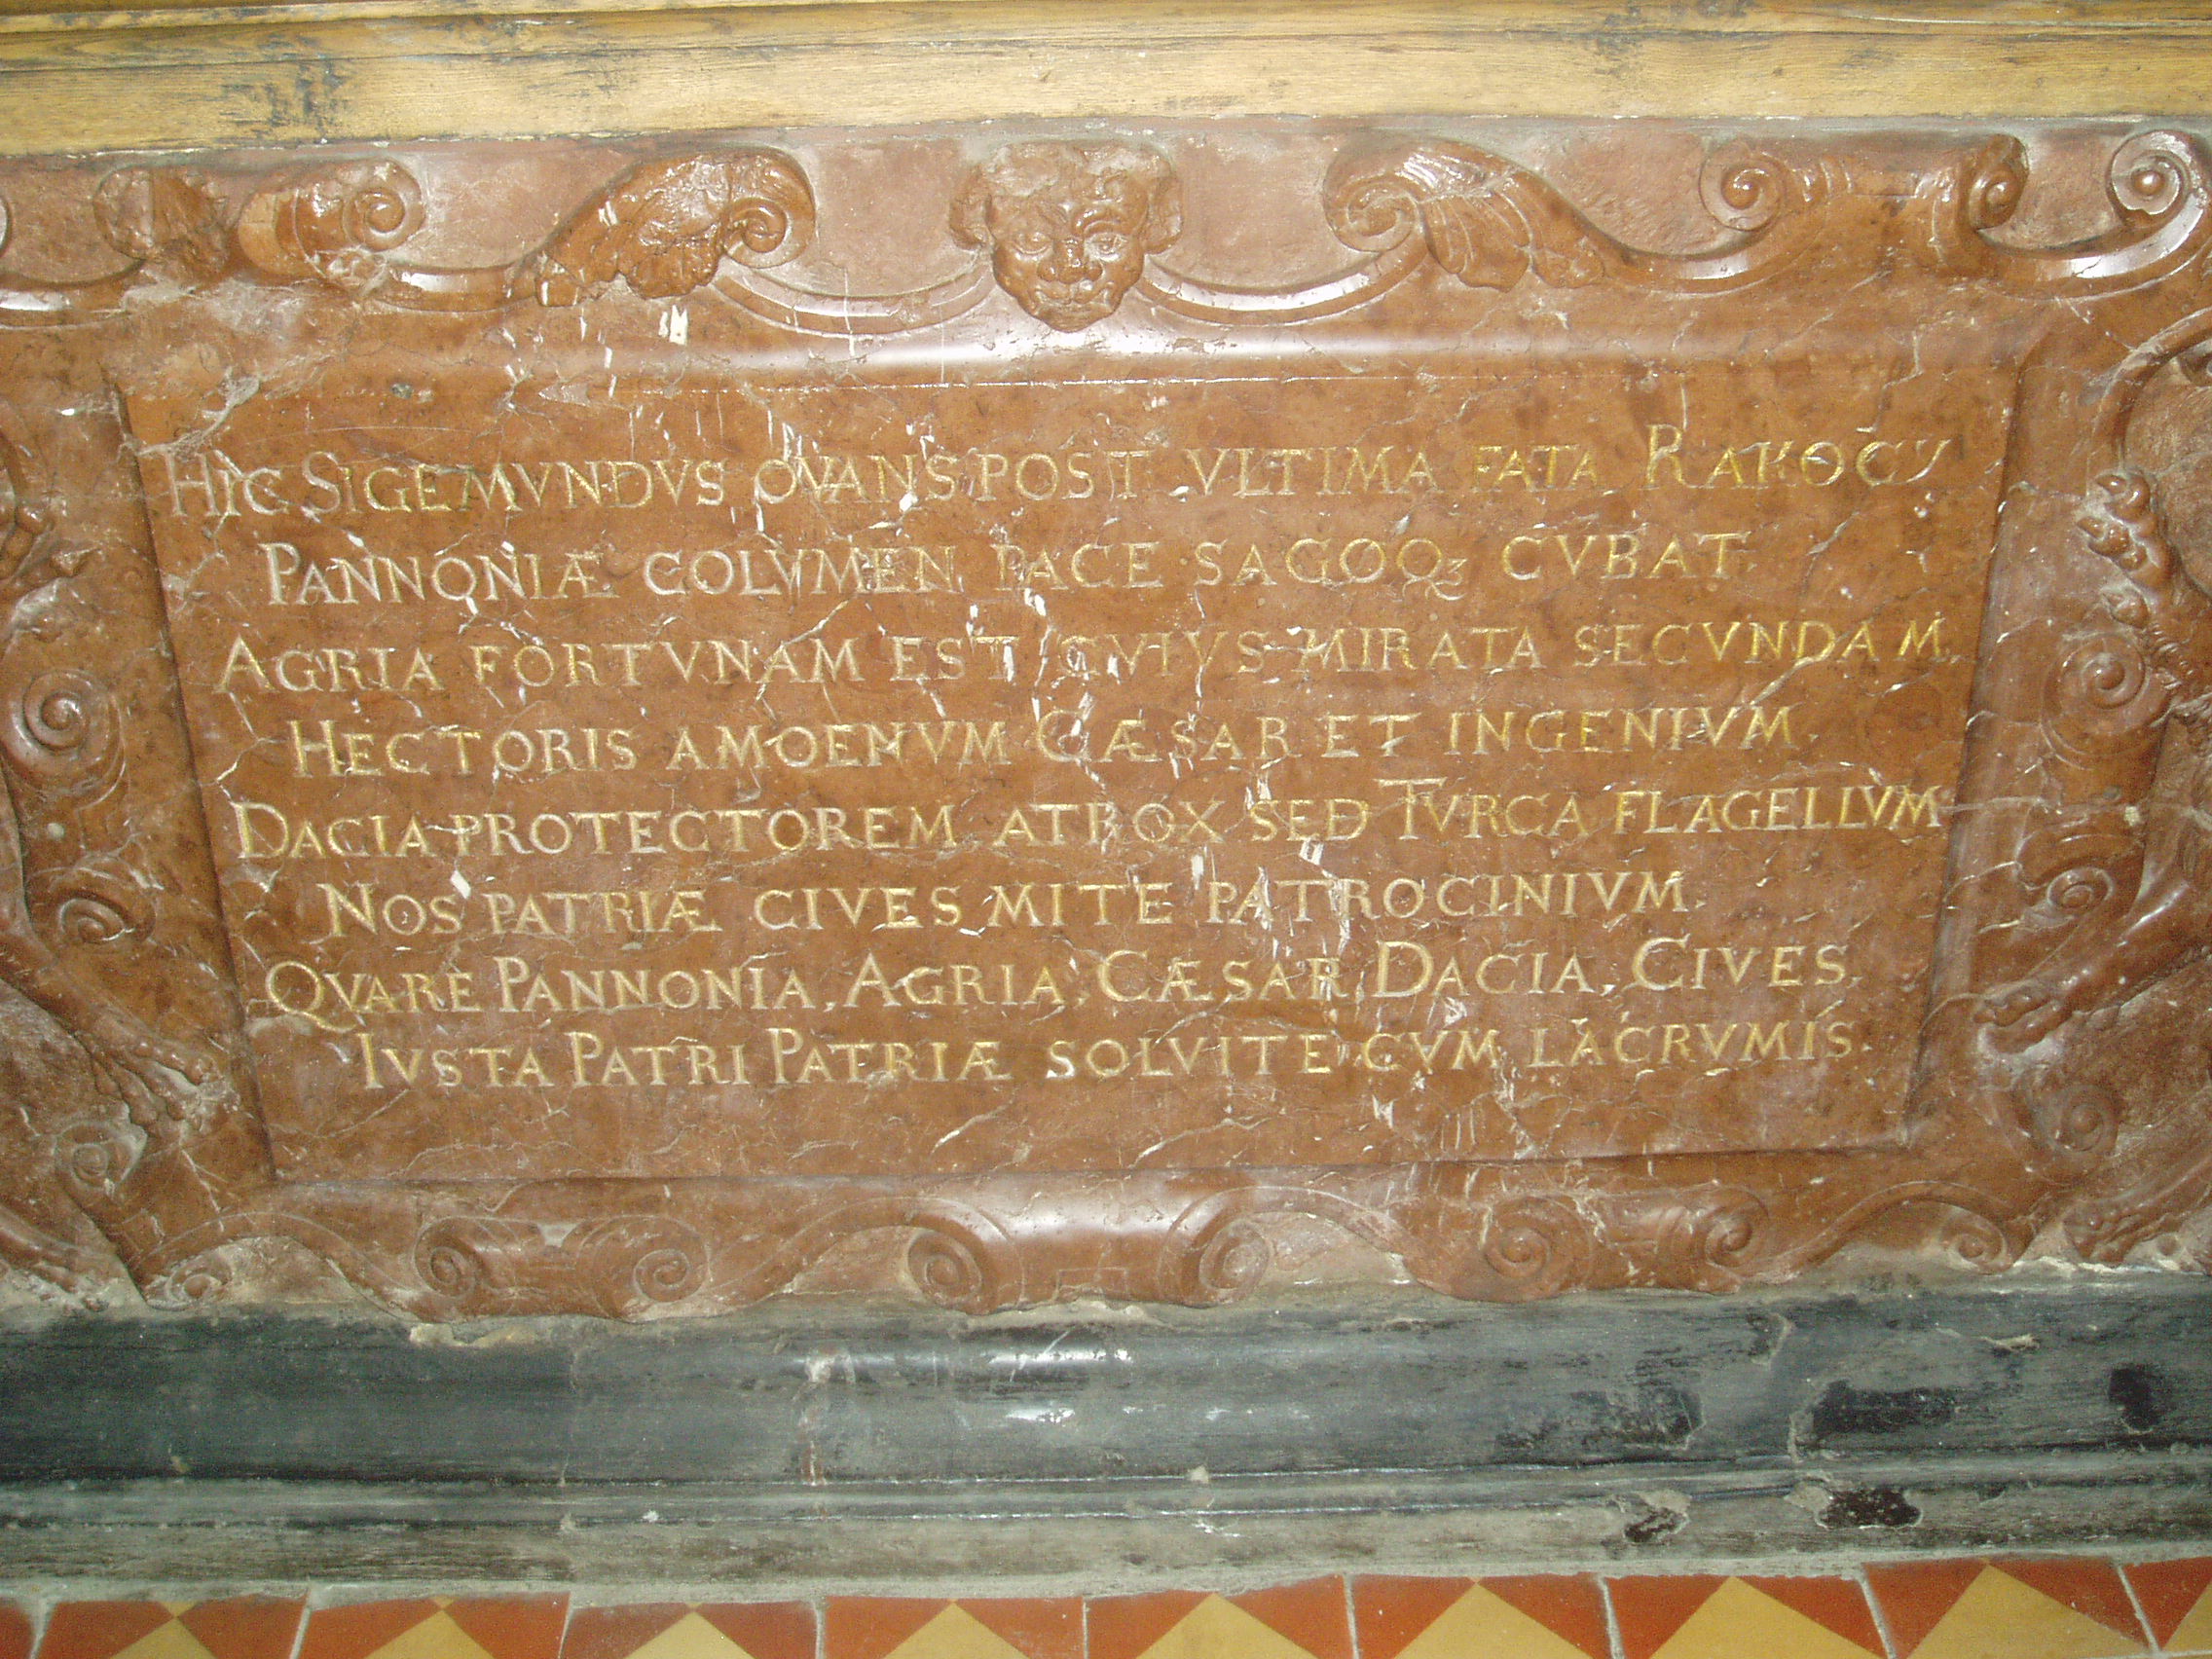 HIC SIGEMVNDVS OVANS POST VLTIMA FATA RAKOCY
PANNONIÆ COLVMEN PACE SAGOQꝫ CVBAT.
AGRIA FORTVNAM EST CVIVS MIRATA SECVNDAM,
HECTORIS AMOENVM CÆSAR ET INGENIVM.
DACIA PROTECTOREM ATROX SED TVRCA FLAGELLVM
NOS PATRIÆ CIVES MITE PATROCINIVM.
QVARE PANNONIA, AGRIA, CÆSAR, DACIA, CIVES
IVSTA PATRI PATRIÆ SOLVITE CVM LACRVMIS.